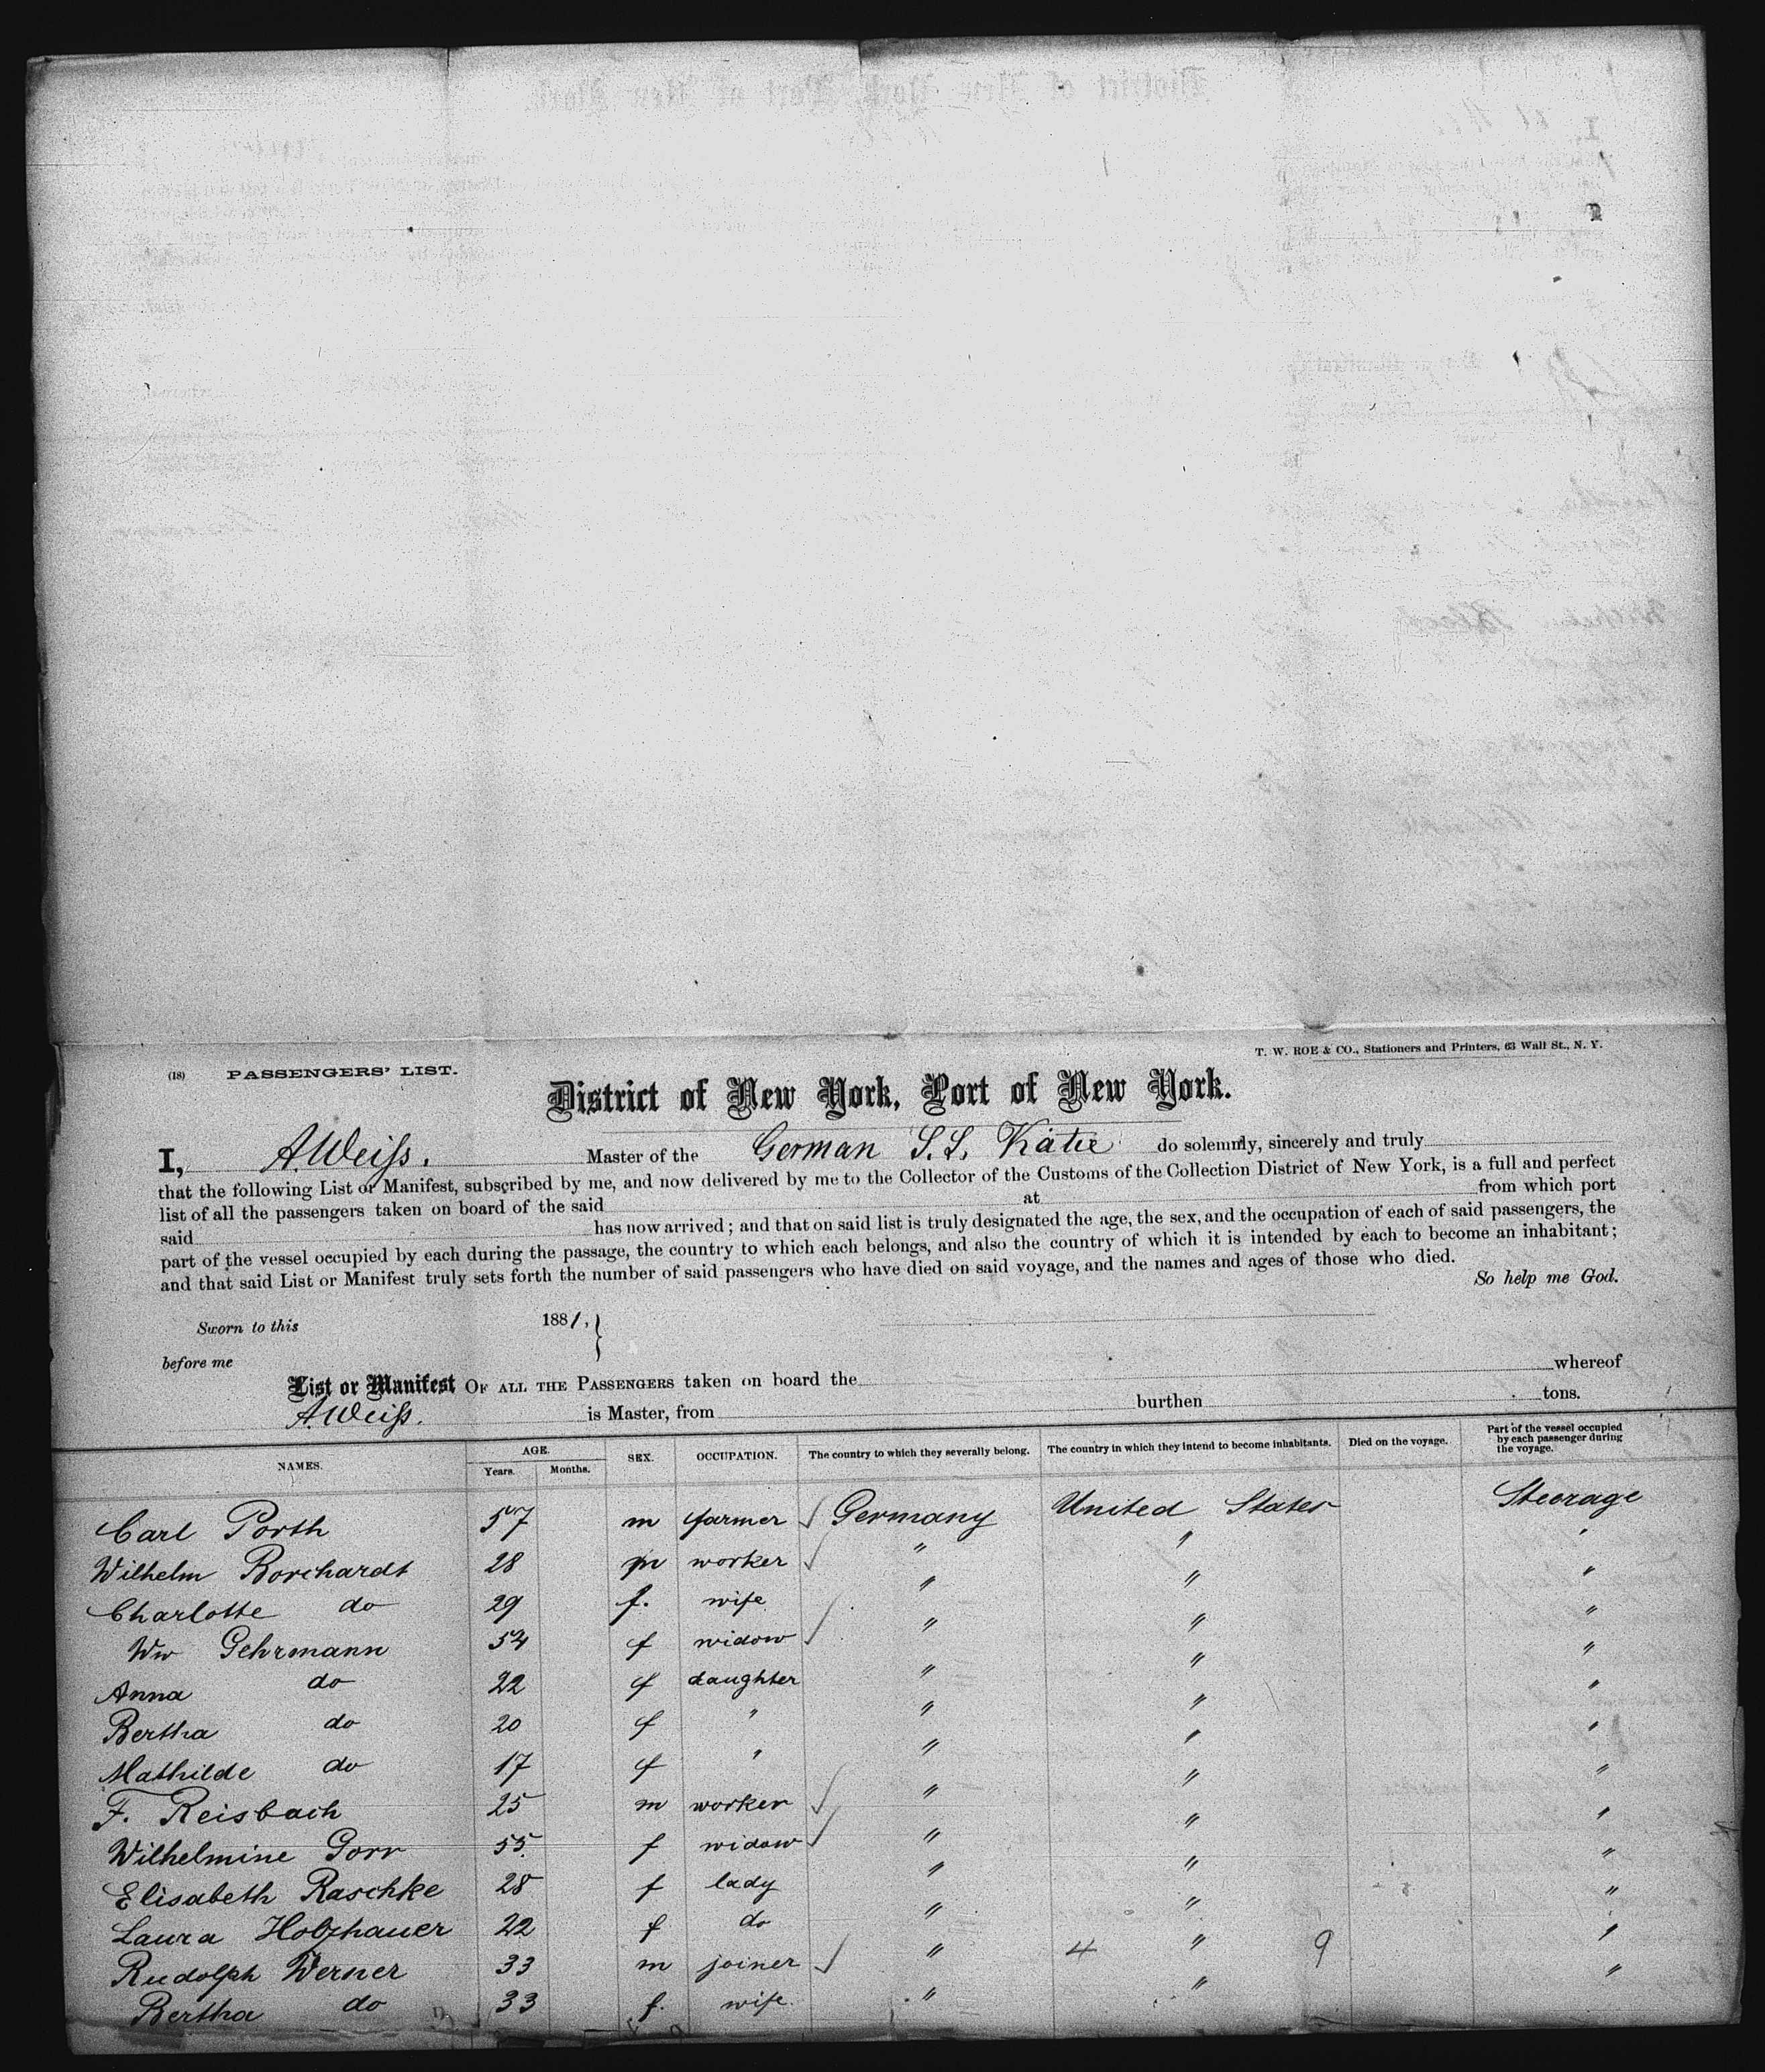 T. W. ROE & CO., Stationers and Printers, 63 Wall St., N. Y.
(18) PASSENGERS' LIST.
District of New York, Port of New York.
I, A. Weiss. Master of the German S.S. Katie do solemnly, sincerely and truly
that the following List or Manifest, subscribed by me, and now delivered by me to the Collector of the Customs of the Collection District of New York, is a full and perfect
list of all the passengers taken on board of the said at from which port
said has now arrived; and that on said list is truly designated the age, the sex, and the occupation of each of said passengers, the
part of the vessel occupied by each during the passage, the country to which each belongs, and also the country of which it is intended by each to become an inhabitant;
and that said List or Manifest truly sets forth the number of said passengers who have died on said voyage, and the names and ages of those who died.
So help me God.
Sworn to this 1881,
before me
List or Manifest OF ALL THE PASSENGERS taken on board the whereof
A. Weiss. is Master, from burthen tons.
NAMES. AGE. Years. Months. SEX. OCCUPATION. The country to which they severally belong. The country in which they intend to become inhabitants. Died on the voyage. Part of the vessel occupied by each passenger during the voyage.
Carl Porth 57 m farmer Germany United States Steerage
Wilhelm Borchardt 28 m worker " " "
Charlotte do 29 f. wife " " "
Ww Gehrmann 54 f widow " " "
Anna do 22 f daughter " " "
Bertha do 20 f " " " "
Mathilde do 17 f " " " "
F. Reisbach 25 m worker " " "
Wilhelmine Gorr 55. f widow " " "
Elisabeth Raschke 28 f lady " " "
Laura Holzhauer 22 f do " " "
Rudolph Werner 33 m joiner " 4 " 9 "
Bertha do 33 f. wife. " " "